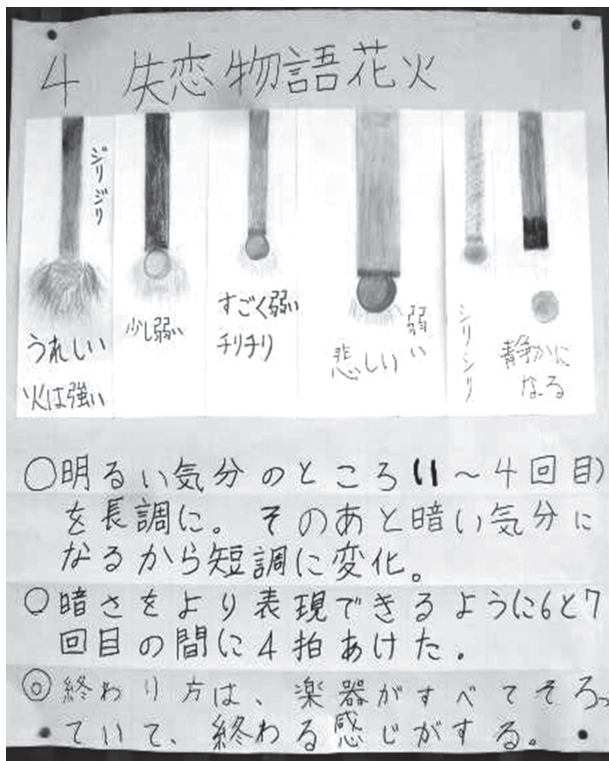 4 失恋物語花火
ジリジリ
うれしい
火は強い
少し弱い
すごく弱い
チリチリ
悲しい
弱い
シリシリ
静かに
なる
○明るい気分のところ(1～4回目)
を長調に。そのあと暗い気分に
なるから短調に変化。
○暗さをより表現できるように6と7
回目の間に4拍あけた.
◎終わり方は、楽器がすべてそろっ
ていて、終わる感じがする。